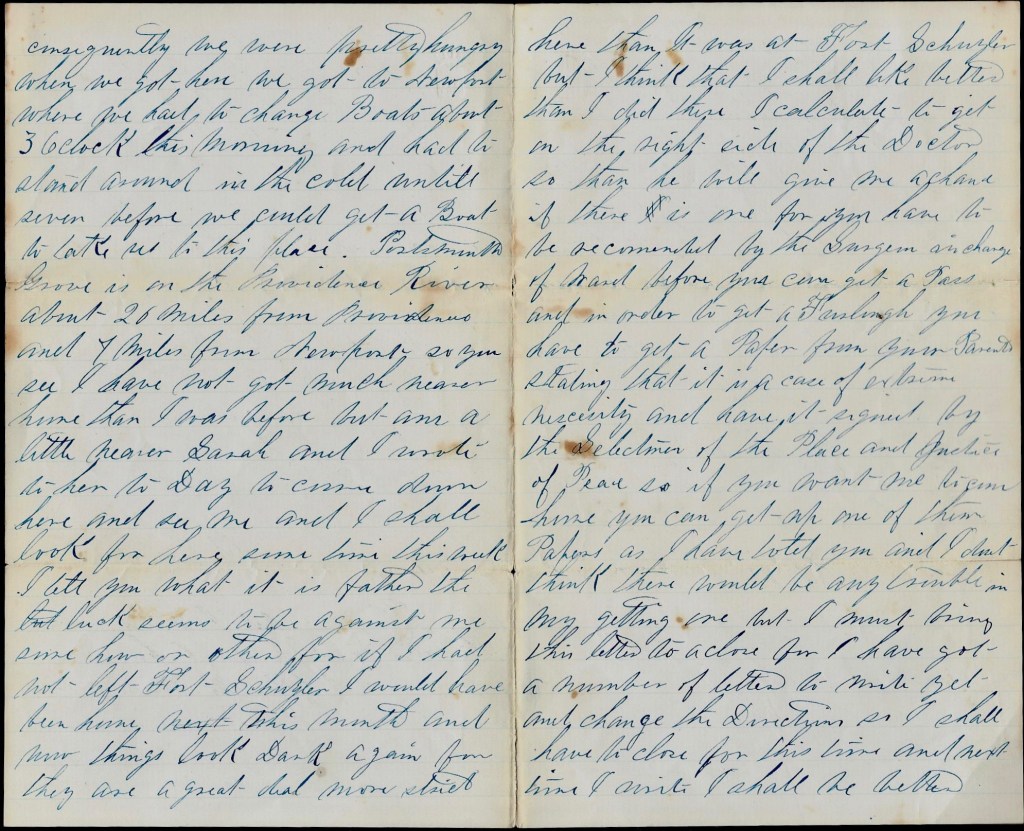 consequently we were pretty hungry
when we got here we got to Newport
where we had to change Boats about
3 Oclock this Morning and had to
stand around in the cold untill
seven before we could get a Boat
to take us to this place. Portsmouth
Grove is on the Providence River
about 20 Miles from Providence
and 7 Miles from Newport, so you
see I have not got much nearer
home than I was before but am a
little nearer Sarah and I wrote
to her to Day to come down
here and see me and I shall
look for her some time this week
I tell you what it is father the
luck seems to be against me
some how or other for if I had
not left Fort Schuyler I would have
been home next this month and
now things look Dark again for
they are a great deal more strict
here than It was at Fort Schuyler
but I think that I shall like better
than I did there I calculate to get
on the right side of the Doctor
so than he will give me a chance
if there is one for you have to
be recomended by the Surgeon in charge
of Ward before you can get a Pass
and in order to get a Furlough you
have to get a Paper from your Parents
stating that it is a case of extreme
nescesity and have it signed by
the Selectmen of the Place and Justice
of Peace so if you want me to come
home you can get up one of them
Papers as I have toled you and I dont
think there would be any trouble in
my getting one but I must bring
this letter to a close for I have got
a number of letters to write yet
and change the Directions so I shall
have to close for this time and next
time I write I shall be better